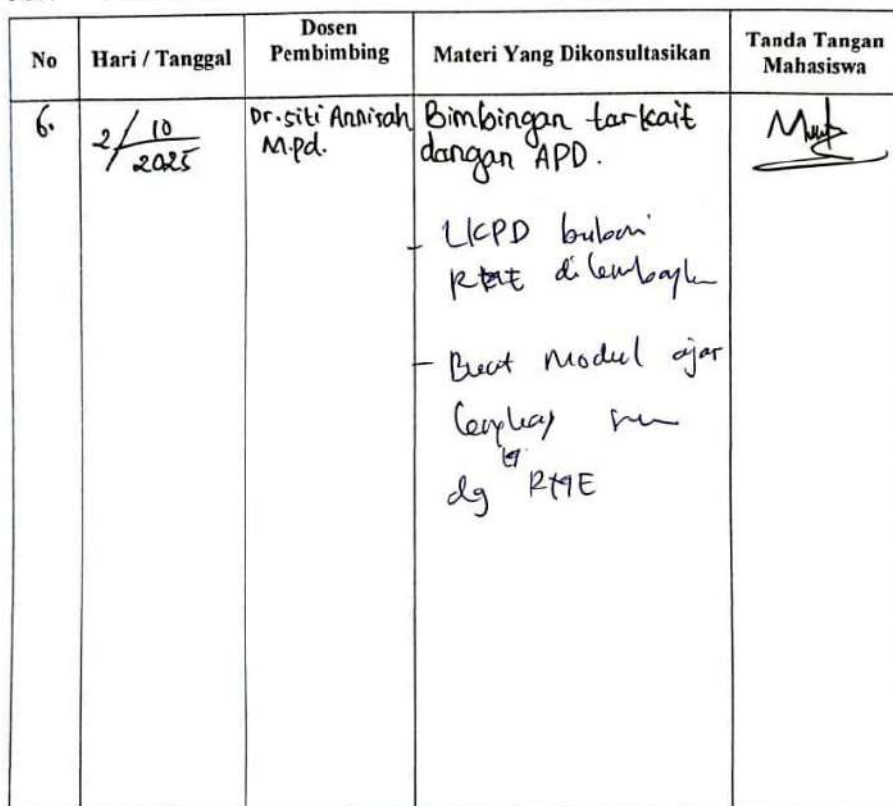 No
Hari / Tanggal
Dosen
Pembimbing
Materi Yang Dikonsultasikan
Tanda Tangan
Mahasiswa
6.
2/10
2025
Dr. Siti Annisah
M.pd.
Bimbingan tarkait
dangan APD.
- LKPD
RME
- Buat Modul ajar
dg RME